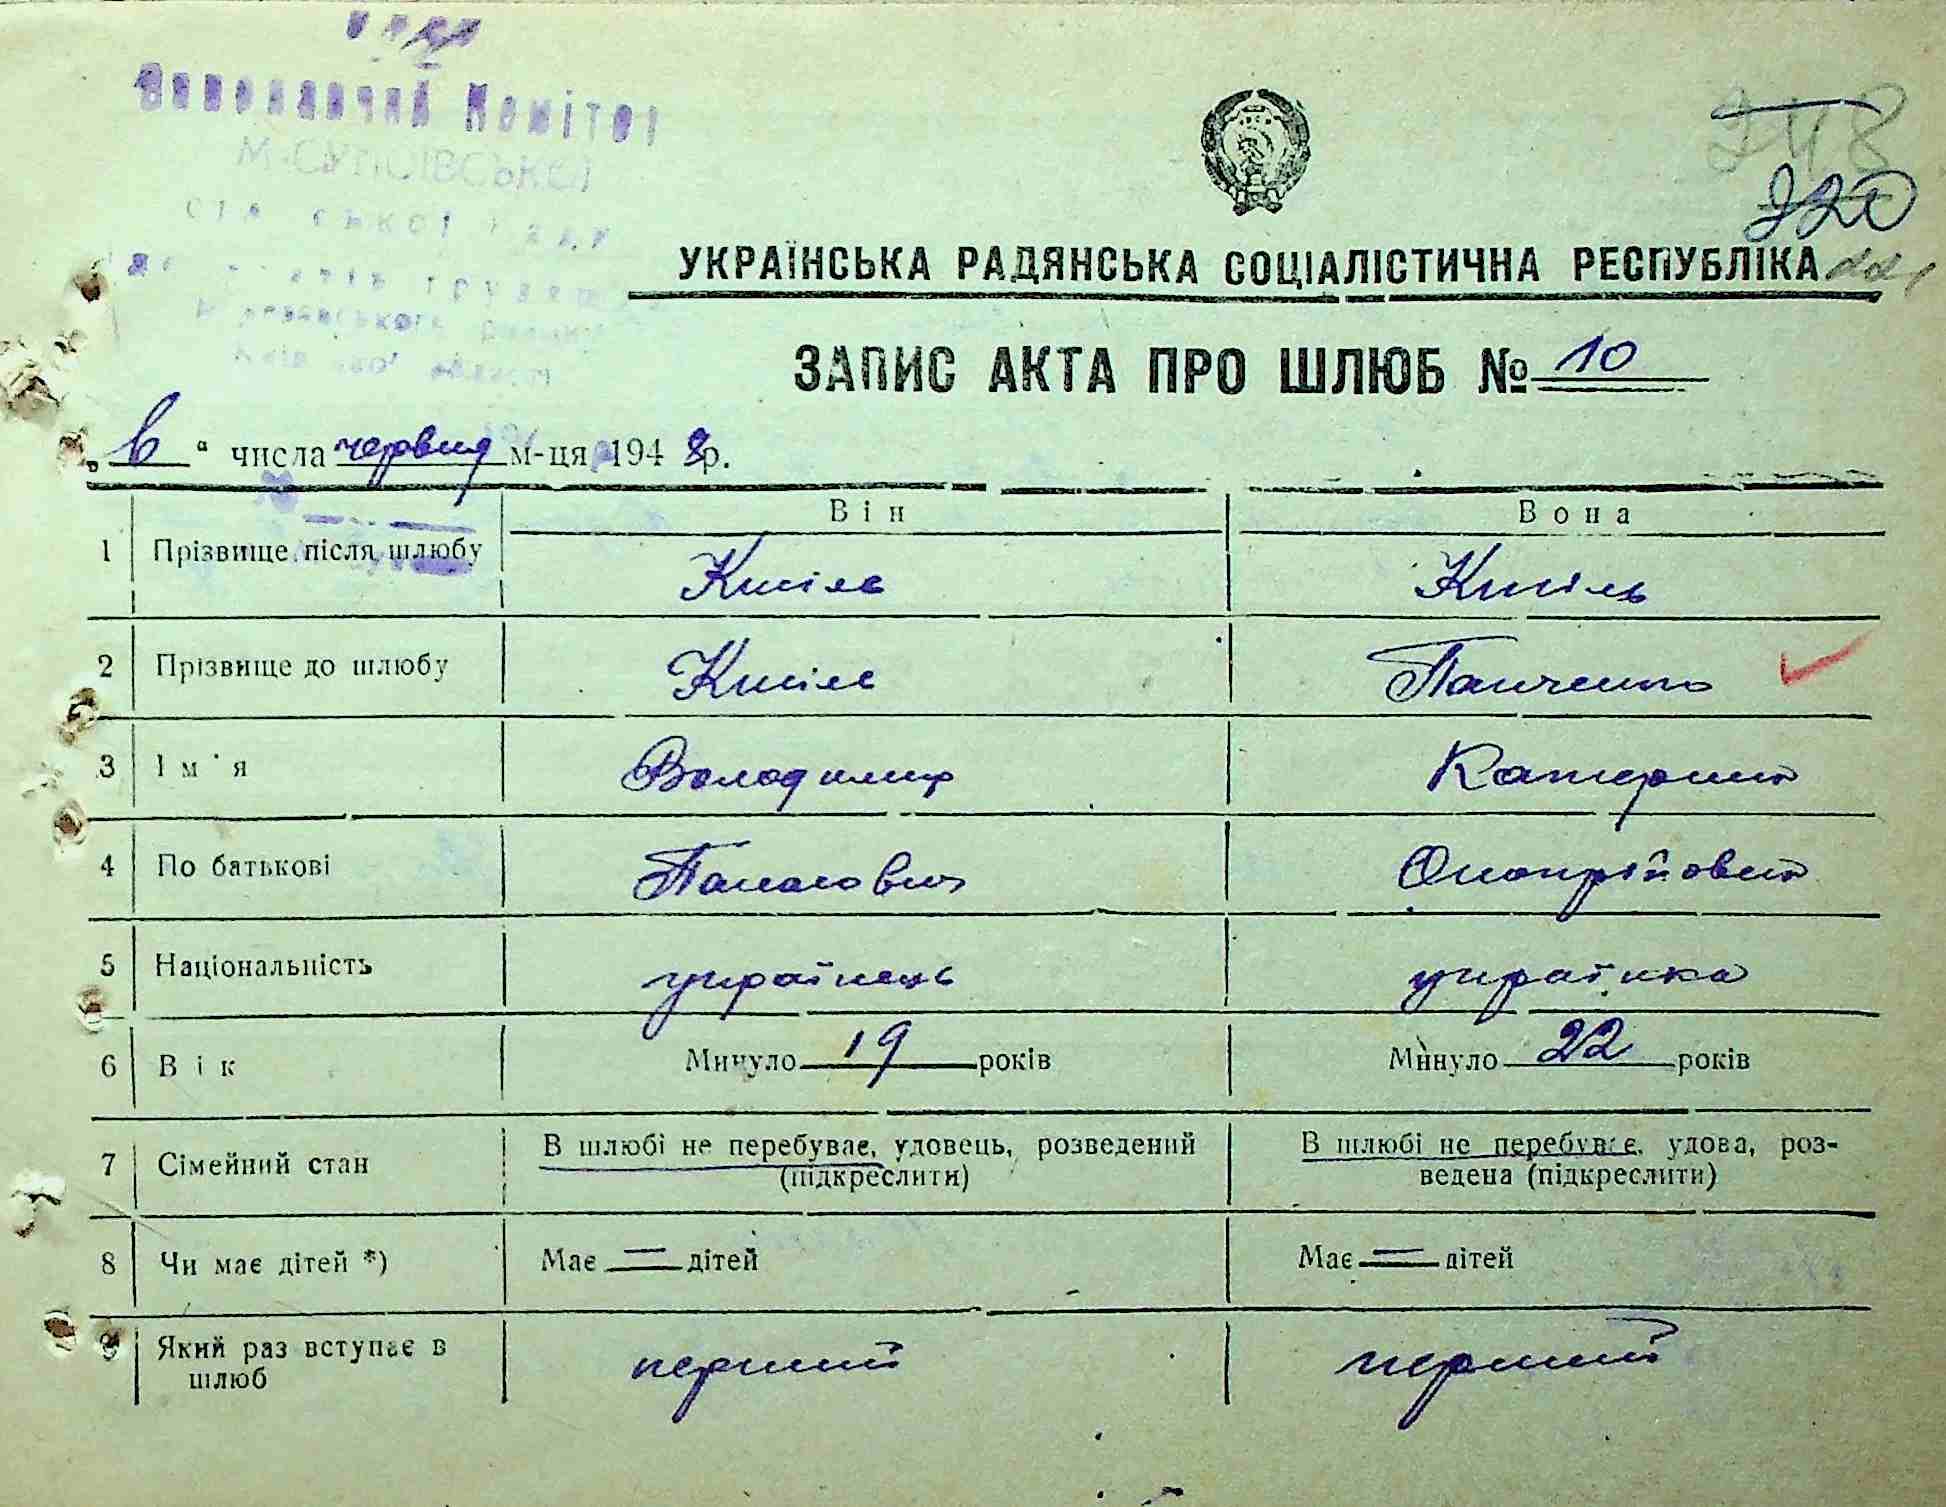 УРСР
Виконавчий Комітет
М-СУПОЇВСЬКОЇ
сільської Ради
депутатів трудящ
району
області
248
220
221
УКРАЇНСЬКА РАДЯНСЬКА СОЦІАЛІСТИЧНА РЕСПУБЛІКА
ЗАПИС АКТА ПРО ШЛЮБ № 10
„6“ числа червня м-ця 1948р.
Він Вона
1 Прізвище після шлюбу Кисіль Кисіль
2 Прізвище до шлюбу Кисіль Панченко
3 Ім'я Володимир Катерина
4 По батькові Панасович Онопріївна
5 Національність українець українка
6 Вік Минуло 19 років Минуло 22 років
7 Сімейний стан В шлюбі не перебуває, удовець, розведений В шлюбі не перебуває, удова, роз-
(підкреслити) ведена (підкреслити)
8 Чи має дітей *) Має — дітей Має — дітей
9 Який раз вступає в перший перший
шлюб